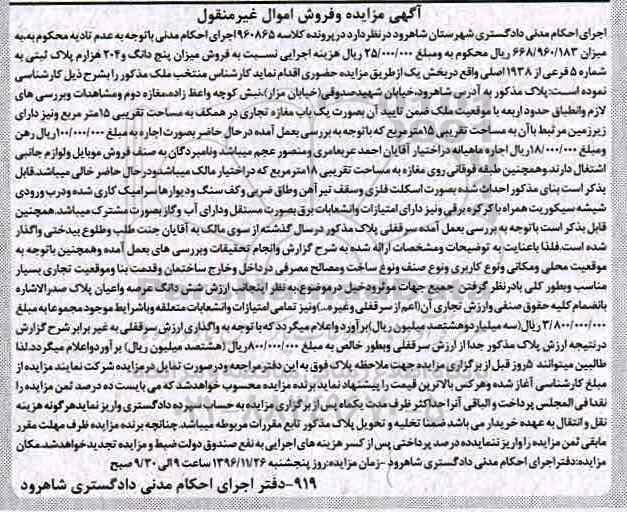 آگهی مزایده وفروش اموال غیرمنقول
اجرای احکام مدنی دادگستری شهرستان شاهرود در نظر دارد در پرونده کلاسه ۹۶۰۸۶۵ اجرای احکام مدنی با توجه به عدم تادیه محکوم به به
میزان ۶۶۸/۹۶۰/۱۸۳ ریال محکوم به ومبلغ ۲۵/۰۰۰/۰۰۰ ریال هزینه اجرایی نسبت به فروش میزان پنج دانگ و ۲۰۴ هزارم پلاک ثبتی به
شماره ۵ فرعی از ۱۹۳۸ اصلی واقع دربخش یک از طریق مزایده حضوری اقدام نماید کارشناس منتخب ملک مذکور را بشرح ذیل کارشناسی
نموده است: پلاک مذکور به آدرس شاهرود، خیابان شهید صدوقی (خیابان مزار)، نبش کوچه واعظ زاده، مغازه دوم ومشاهدات وبررسی های
لازم وانطباق حدود اربعه با موقعیت ملک ضمن تایید آن بصورت یک باب مغازه تجاری در همکف به مساحت تقریبی ۱۵متر مربع ونیز دارای
زیرزمین مرتبط با آن به مساحت تقریبی ۱۵مترمربع که باتوجه به بررسی بعمل آمده در حال حاضر بصورت اجاره به مبلغ ۱۰۰/۰۰۰/۰۰۰ ریال رهن
ومبلغ ۱۸/۰۰۰/۰۰۰ ریال اجاره ماهیانه دراختیار آقایان احمد عربعامری ومنصور عجم میباشد ونامبردگان به صنف فروش موبایل ولوازم جانبی
اشتغال دارند وهمچنین طبقه فوقانی روی مغازه به مساحت تقریبی ۱۸مترمربع که در اختیار مالک میباشد ودر حال حاضر خالی میباشد. قابل
بذکر است بنای مذکور احداث شده بصورت اسکلت فلزی وسقف تیر آهن وطاق ضربی وکف سنگ ودیوارها سرامیک کاری شده ودرب ورودی
شیشه سیکوریت همراه با کرکره برقی ونیز دارای امتیازات وانشعابات برق بصورت مستقل ودارای آب وگاز بصورت مشترک میباشد. همچنین
قابل بذکر است باتوجه به بررسی بعمل آمده سرقفلی پلاک مذکور در سال گذشته از سوی مالک به آقایان جنت طلب وطلوع بیدختی واگذار
شده است. فلذا باعنایت به توضیحات ومشخصات ارائه شده به شرح گزارش وانجام تحقیقات وبررسی های بعمل آمده وهمچنین باتوجه به
موقعیت محلی ومکانی ونوع کاربری ونوع صنف ونوع ساخت ومصالح مصرفی در داخل وخارج ساختمان وقدمت بنا وموقعیت تجاری بسیار
مناسب وبطور کلی بادرنظر گرفتن جمیع جهات موثر ودخیل در موضوع، به نظر اینجانب ارزش شش دانگ عرصه واعیان پلاک صدرالاشاره
باانضمام کلیه حقوق صنفی وارزش تجاری آن (اعم از سرقفلی وغیره...) ونیز تمامی امتیازات وانشعابات متعلقه وباشرایط موجود مجموعا به مبلغ
۳/۸۰۰/۰۰۰/۰۰۰ ریال (سه میلیارد وهشتصد میلیون ریال) برآورد واعلام میگردد که با توجه به واگذاری ارزش سرقفلی به غیر برابر شرح گزارش
درنتیجه ارزش پلاک مذکور جدا از ارزش سرقفلی وبطور خالص به مبلغ ۸۰۰/۰۰۰/۰۰۰ ریال (هشتصد میلیون ریال) برآورد واعلام میگردد. لذا
طالبین میتوانند ۵روز قبل از برگزاری مزایده جهت ملاحظه پلاک فوق به این دفتر مراجعه ودرصورت تمایل در مزایده شرکت نمایند مزایده از
مبلغ کارشناسی آغاز شده وهرکس بالاترین قیمت را پیشنهاد نماید برنده مزایده محسوب خواهد شد که می بایست ده درصد ثمن مزایده را
نقدا فی المجلس پرداخت و الباقی آنرا حداکثر ظرف مدت یکماه پس از برگزاری مزایده به حساب سپرده دادگستری واریز نماید هرگونه هزینه
نقل و انتقال به عهده خریدار می باشد ضمنا تخلیه و تحویل پلاک مذکور تابع مقررات مربوطه میباشد. چنانچه برنده مزایده ظرف مهلت مقرر
مابقی ثمن مزایده را واریز ننماید ده درصد پرداختی پس از کسر هزینه های اجرایی به نفع صندوق دولت ضبط و مزایده تجدید خواهد شد. مکان
مزایده: دفتر اجرای احکام مدنی دادگستری شاهرود - زمان مزایده: روز پنجشنبه ۱۳۹۶/۱۱/۲۶ ساعت ۹ الی ۹/۳۰ صبح
۹۱۹- دفتر اجرای احکام مدنی دادگستری شاهرود